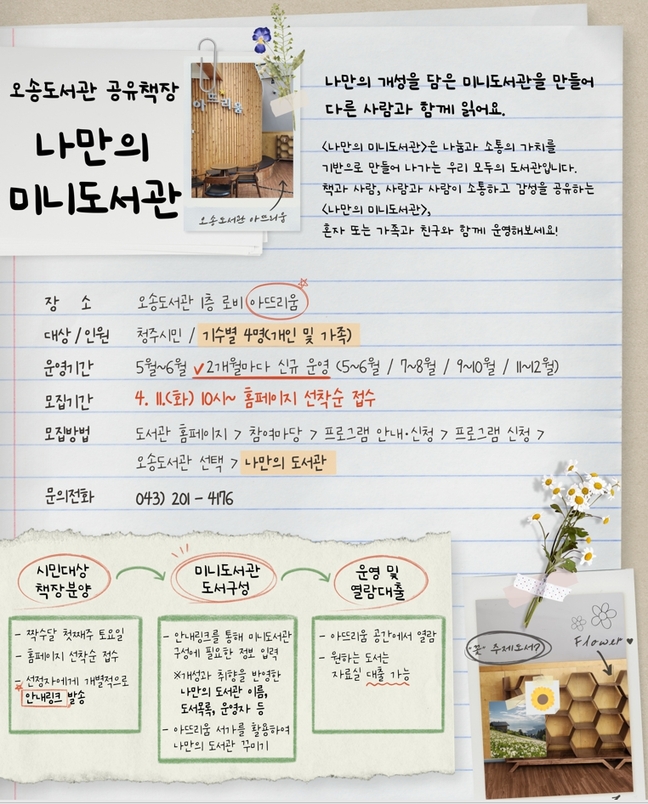 오송도서관 공유책장
나만의
미니도서관
아뜨리움
오송도서관 아뜨리움
나만의 개성을 담은 미니도서관을 만들어
다른 사람과 함께 읽어요.
<나만의 미니도서관>은 나눔과 소통의 가치를
기반으로 만들어 나가는 우리 모두의 도서관입니다.
책과 사람, 사람과 사람이 소통하고 감성을 공유하는
<나만의 미니도서관>,
혼자 또는 가족과 친구와 함께 운영해보세요!
장 소 오송도서관 1층 로비 아뜨리움
대상/인원 청주시민 / 기수별 4명(개인 및 가족)
운영기간 5월~6월 ✓2개월마다 신규 운영 (5~6월 / 7~8월 / 9~10월 / 11~12월)
모집기간 4. 11.(화) 10시~ 홈페이지 선착순 접수
모집방법 도서관 홈페이지 > 참여마당 > 프로그램 안내·신청 > 프로그램 신청 >
오송도서관 선택 > 나만의 도서관
문의전화 043) 201 - 4176
시민대상
책장분양
- 짝수달 첫째주 토요일
- 홈페이지 선착순 접수
- 선정자에게 개별적으로
안내링크 발송
미니도서관
도서구성
- 안내링크를 통해 미니도서관
구성에 필요한 정보 입력
※개성과 취향을 반영한
나만의 도서관 이름,
도서목록, 운영자 등
- 아뜨리움 서가를 활용하여
나만의 도서관 꾸미기
운영 및
열람대출
- 아뜨리움 공간에서 열람
- 원하는 도서는
자료실 대출 가능
"꽃" 주제도서?
Flower ♥